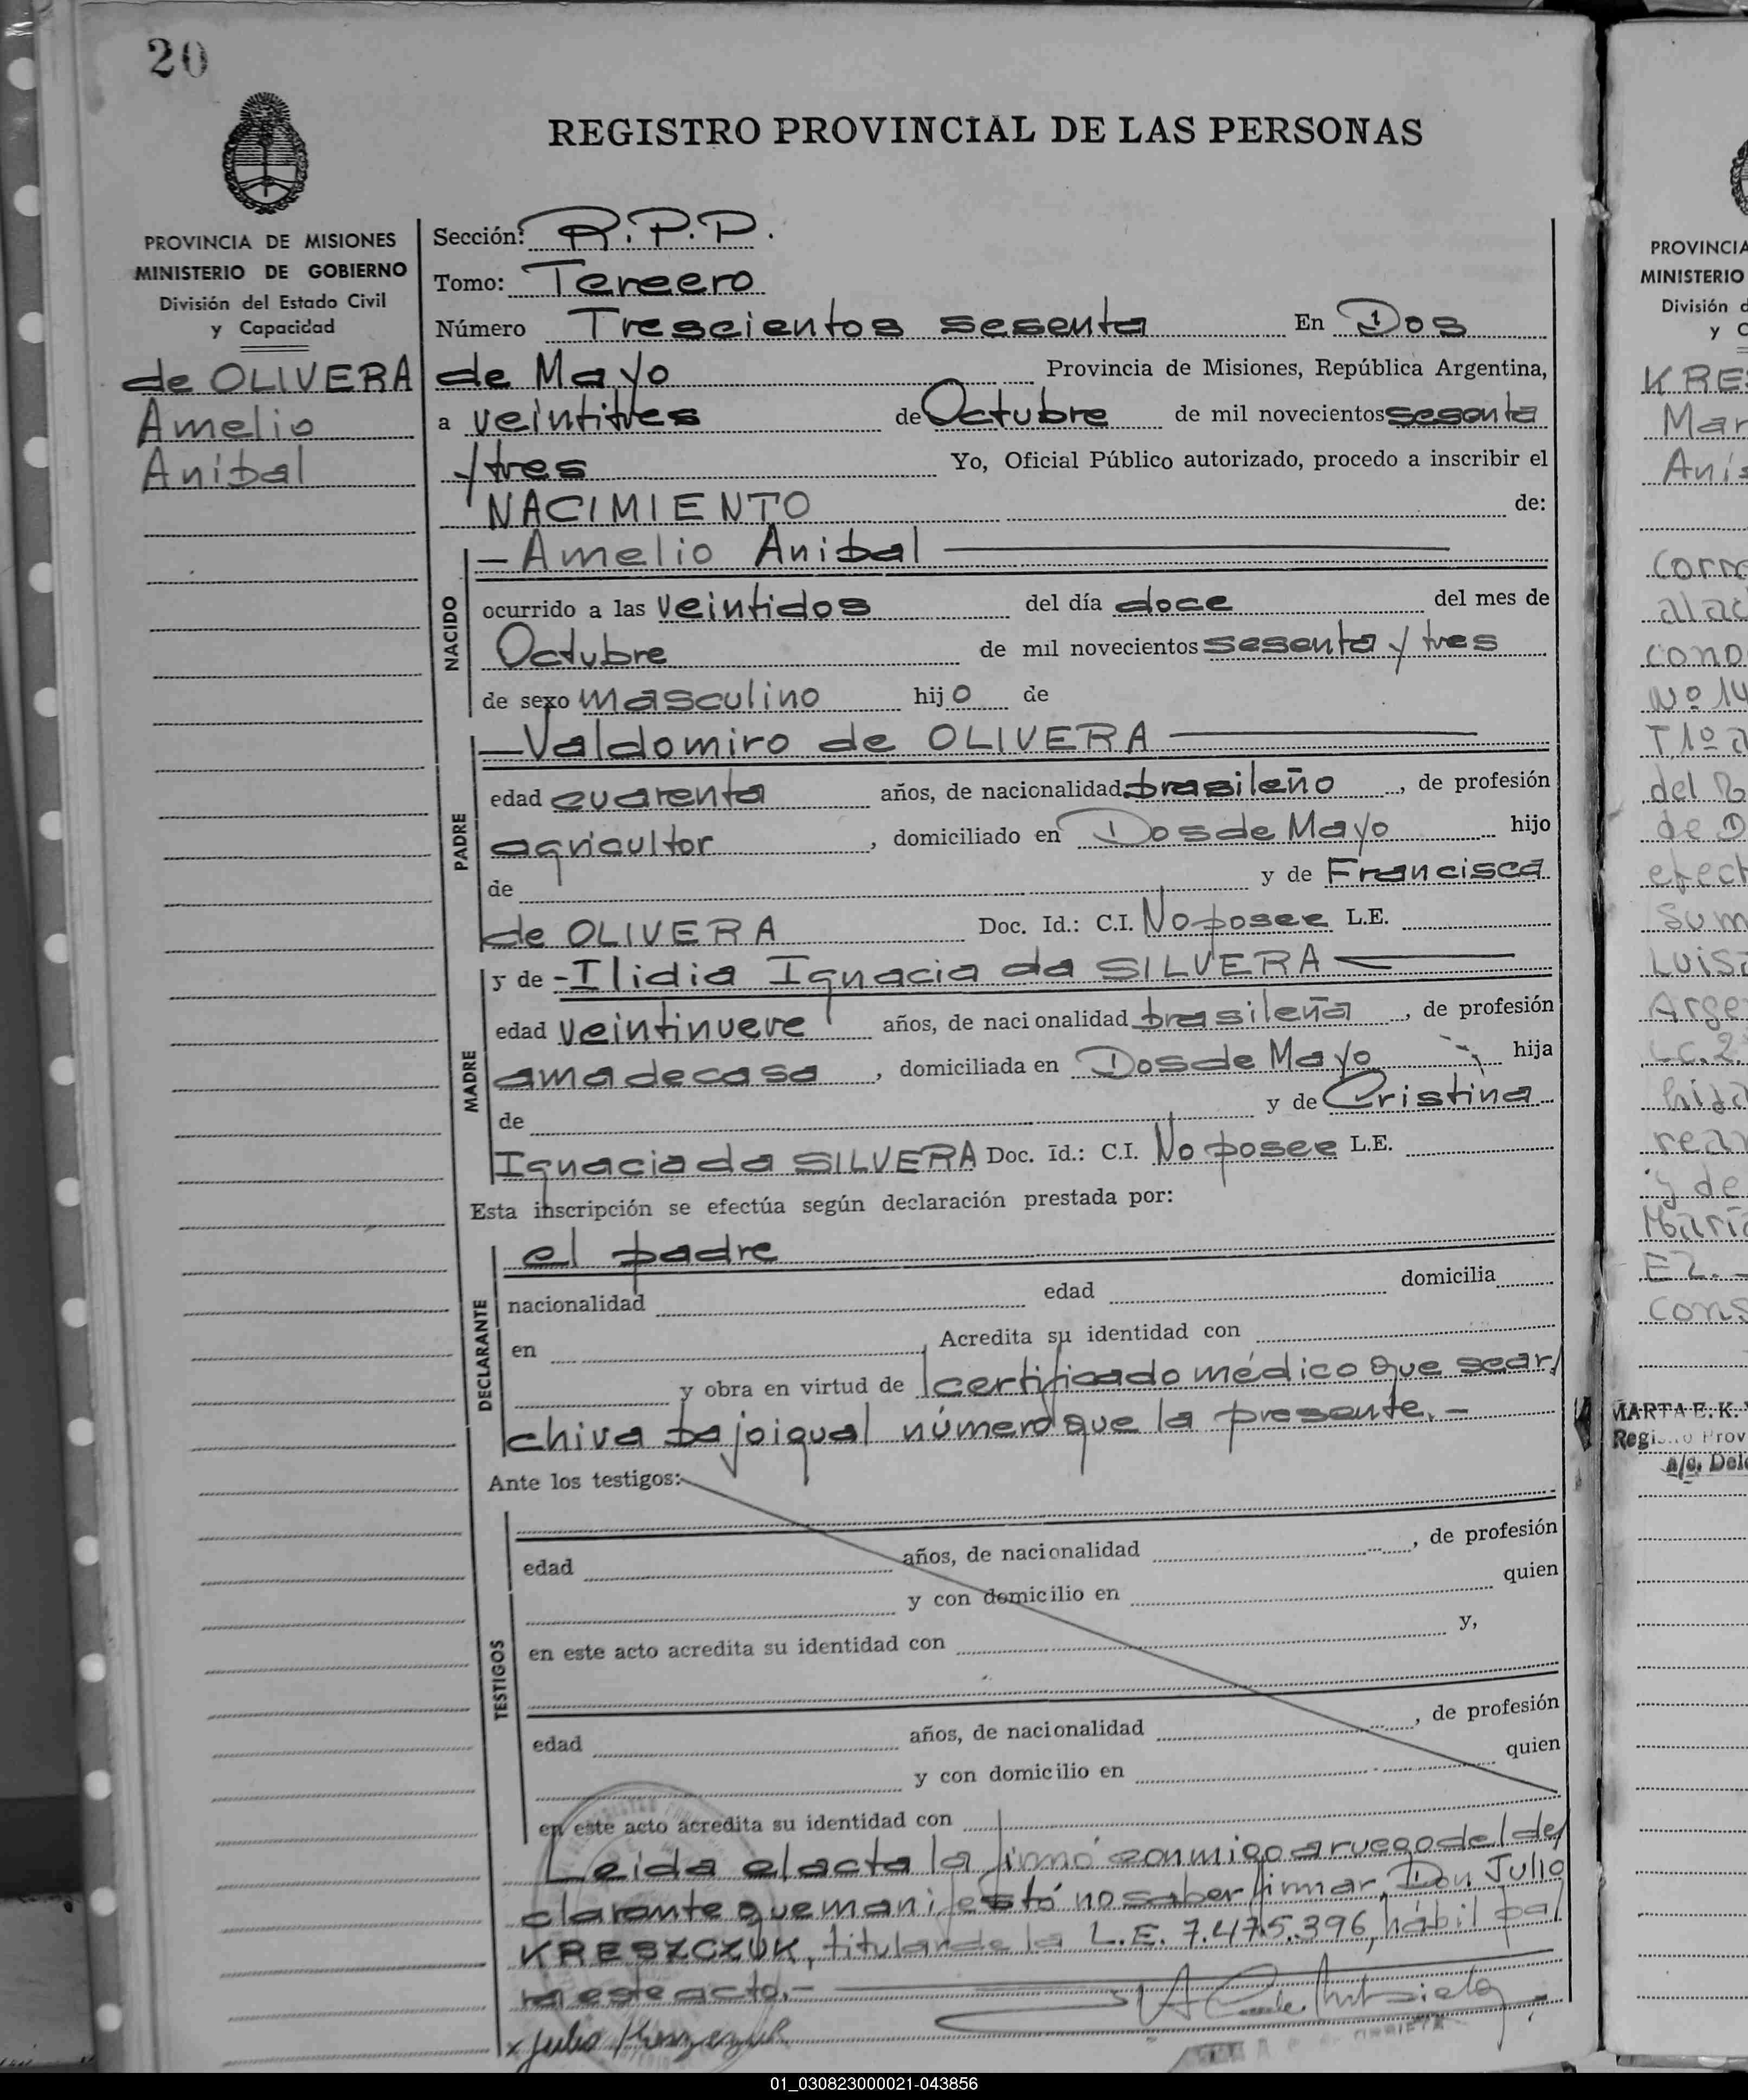 20
REGISTRO PROVINCIAL DE LAS PERSONAS
PROVINCIA DE MISIONES
MINISTERIO DE GOBIERNO
División del Estado Civil
y Capacidad
de OLIVERA
Amelio
Anibal
Sección: R.P.P.
Tomo: Tercero
Número Trescientos sesenta En Dos
de Mayo Provincia de Misiones, República Argentina,
a veintitres de Octubre de mil novecientos sesenta
y tres Yo, Oficial Público autorizado, procedo a inscribir el
NACIMIENTO de:
NACIDO
— Amelio Anibal —
ocurrido a las veintidos del día doce del mes de
Octubre de mil novecientos sesenta y tres
de sexo masculino hijo de
PADRE
— Valdomiro de OLIVERA —
edad cuarenta años, de nacionalidad brasileño, de profesión
agricultor, domiciliado en Dos de Mayo hijo
de y de Francisca
de OLIVERA Doc. Id.: C.I. No posee L.E.
MADRE
y de - Ilidia Ignacia da SILVERA —
edad veintinueve años, de nacionalidad brasileña, de profesión
ama de casa, domiciliada en Dos de Mayo hija
de y de Cristina
Ignacia da SILVERA Doc. Id.: C.I. No posee L.E.
Esta inscripción se efectúa según declaración prestada por:
DECLARANTE
el padre
nacionalidad edad domicilia
en Acredita su identidad con
y obra en virtud de certificado médico que se ar/
chiva bajo igual número que la presente.-
Ante los testigos:
TESTIGOS
edad años, de nacionalidad, de profesión
y con domicilio en quien
en este acto acredita su identidad con y,
edad años, de nacionalidad, de profesión
y con domicilio en quien
en este acto acredita su identidad con
Leida el acta la firmó conmigo a ruego del de/
clarante que manifestó no saber firmar, Don Julio
KRESZCZUK, titular de la L.E. 7.475.396, hábil pa/
ra este acto.-
x Julio
PROVINCIA
MINISTERIO
División d
y C
KRE
Mar
Anis
Corre
alac
cono
Nº 14
T 1º a
del R
de D
efect
Sum
Luisa
Arge
Lc. 2.
hija
y de
María
EZ. -
Cons
MARTA E. K.
Registro Prov
a/c. Dele
01_030823000021-043856